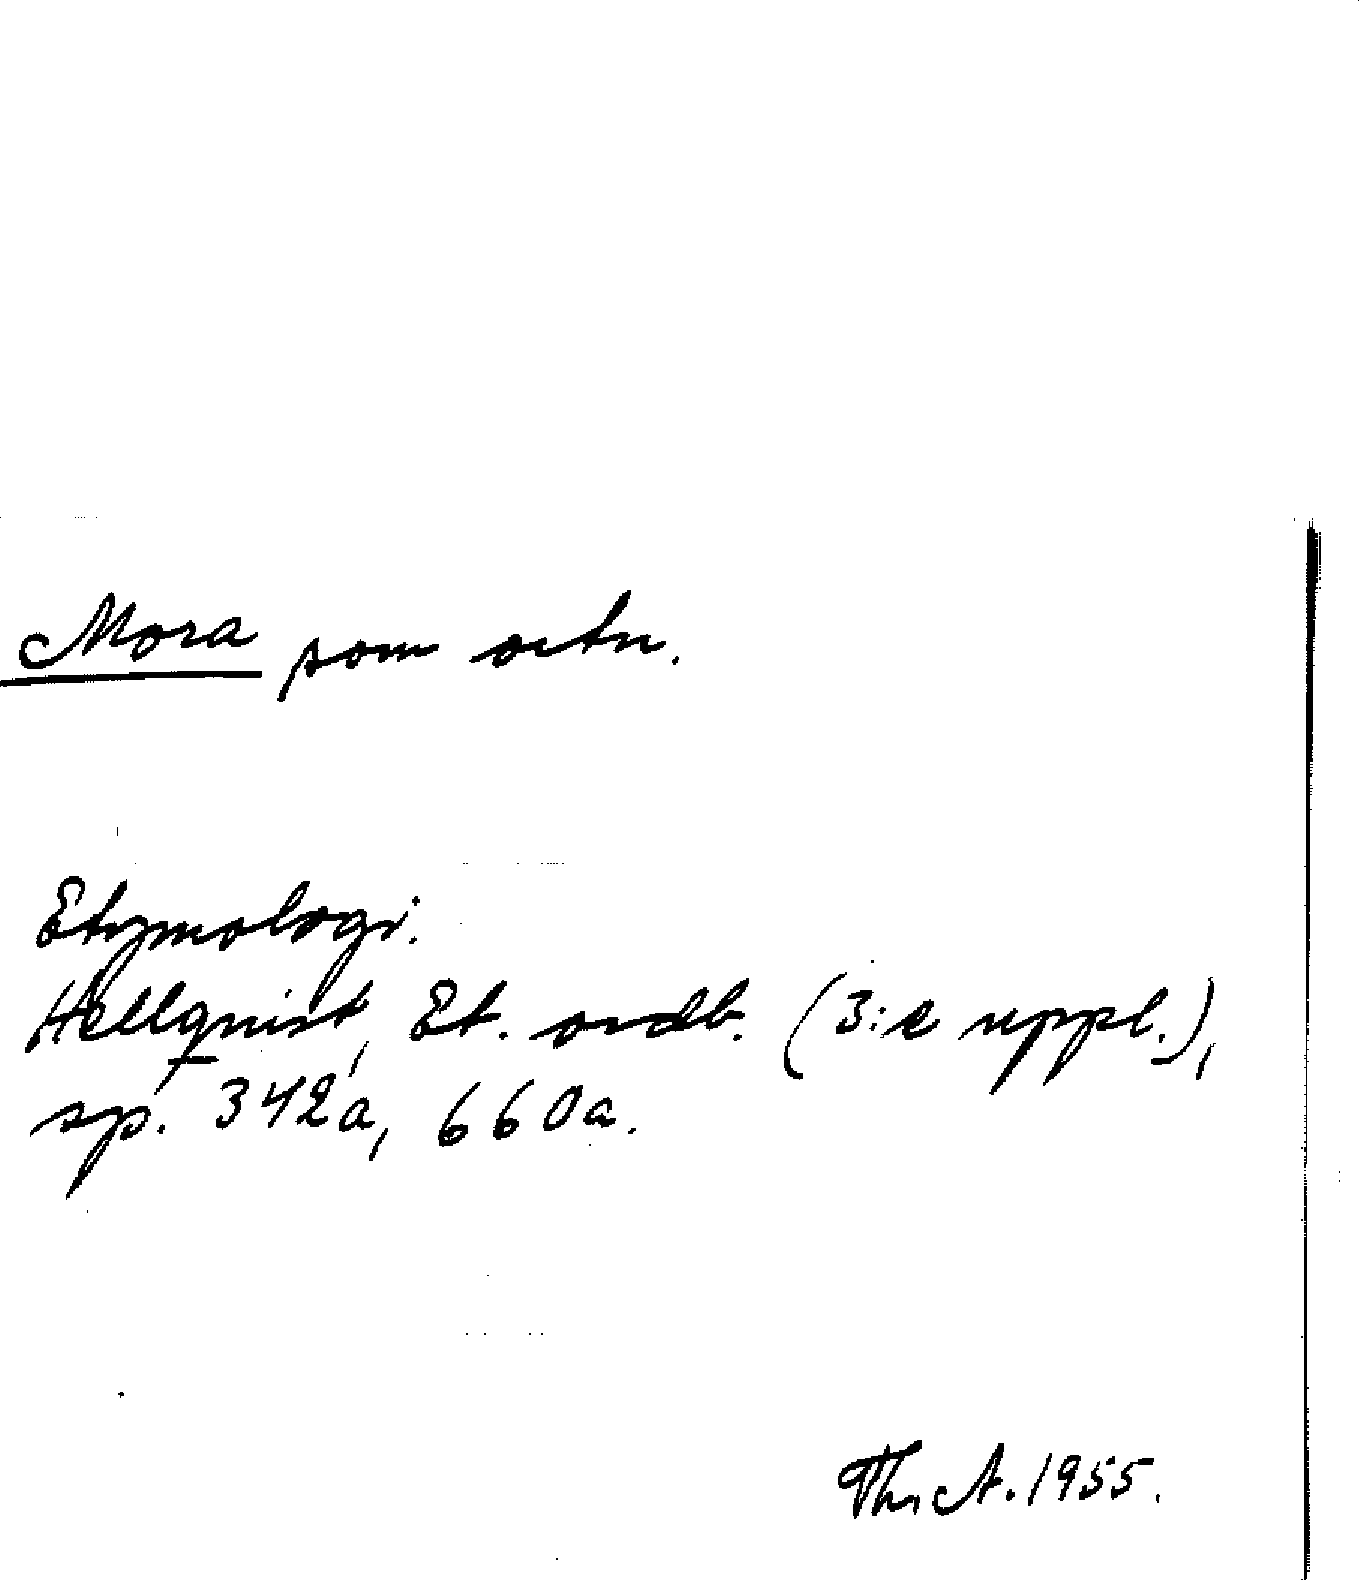 Mora som ortn.
Etymologi.
Hellquist, Et. ordb. (3:e uppl.),
sp. 342a, 660a.
Thn A. 1955.